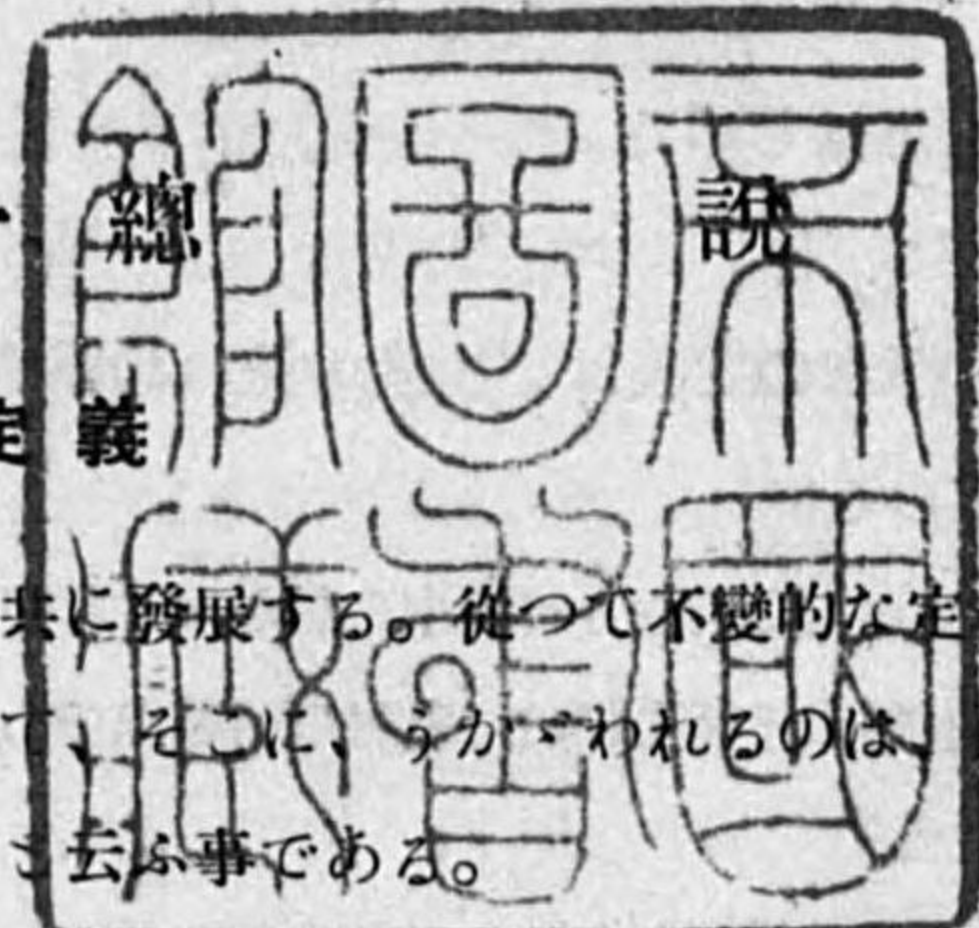 帝國
圖書
館藏
總說
定義
共に發展する。從つて不變的な定
て、そこに、うかゞわれるのは、
と云ふ事である。